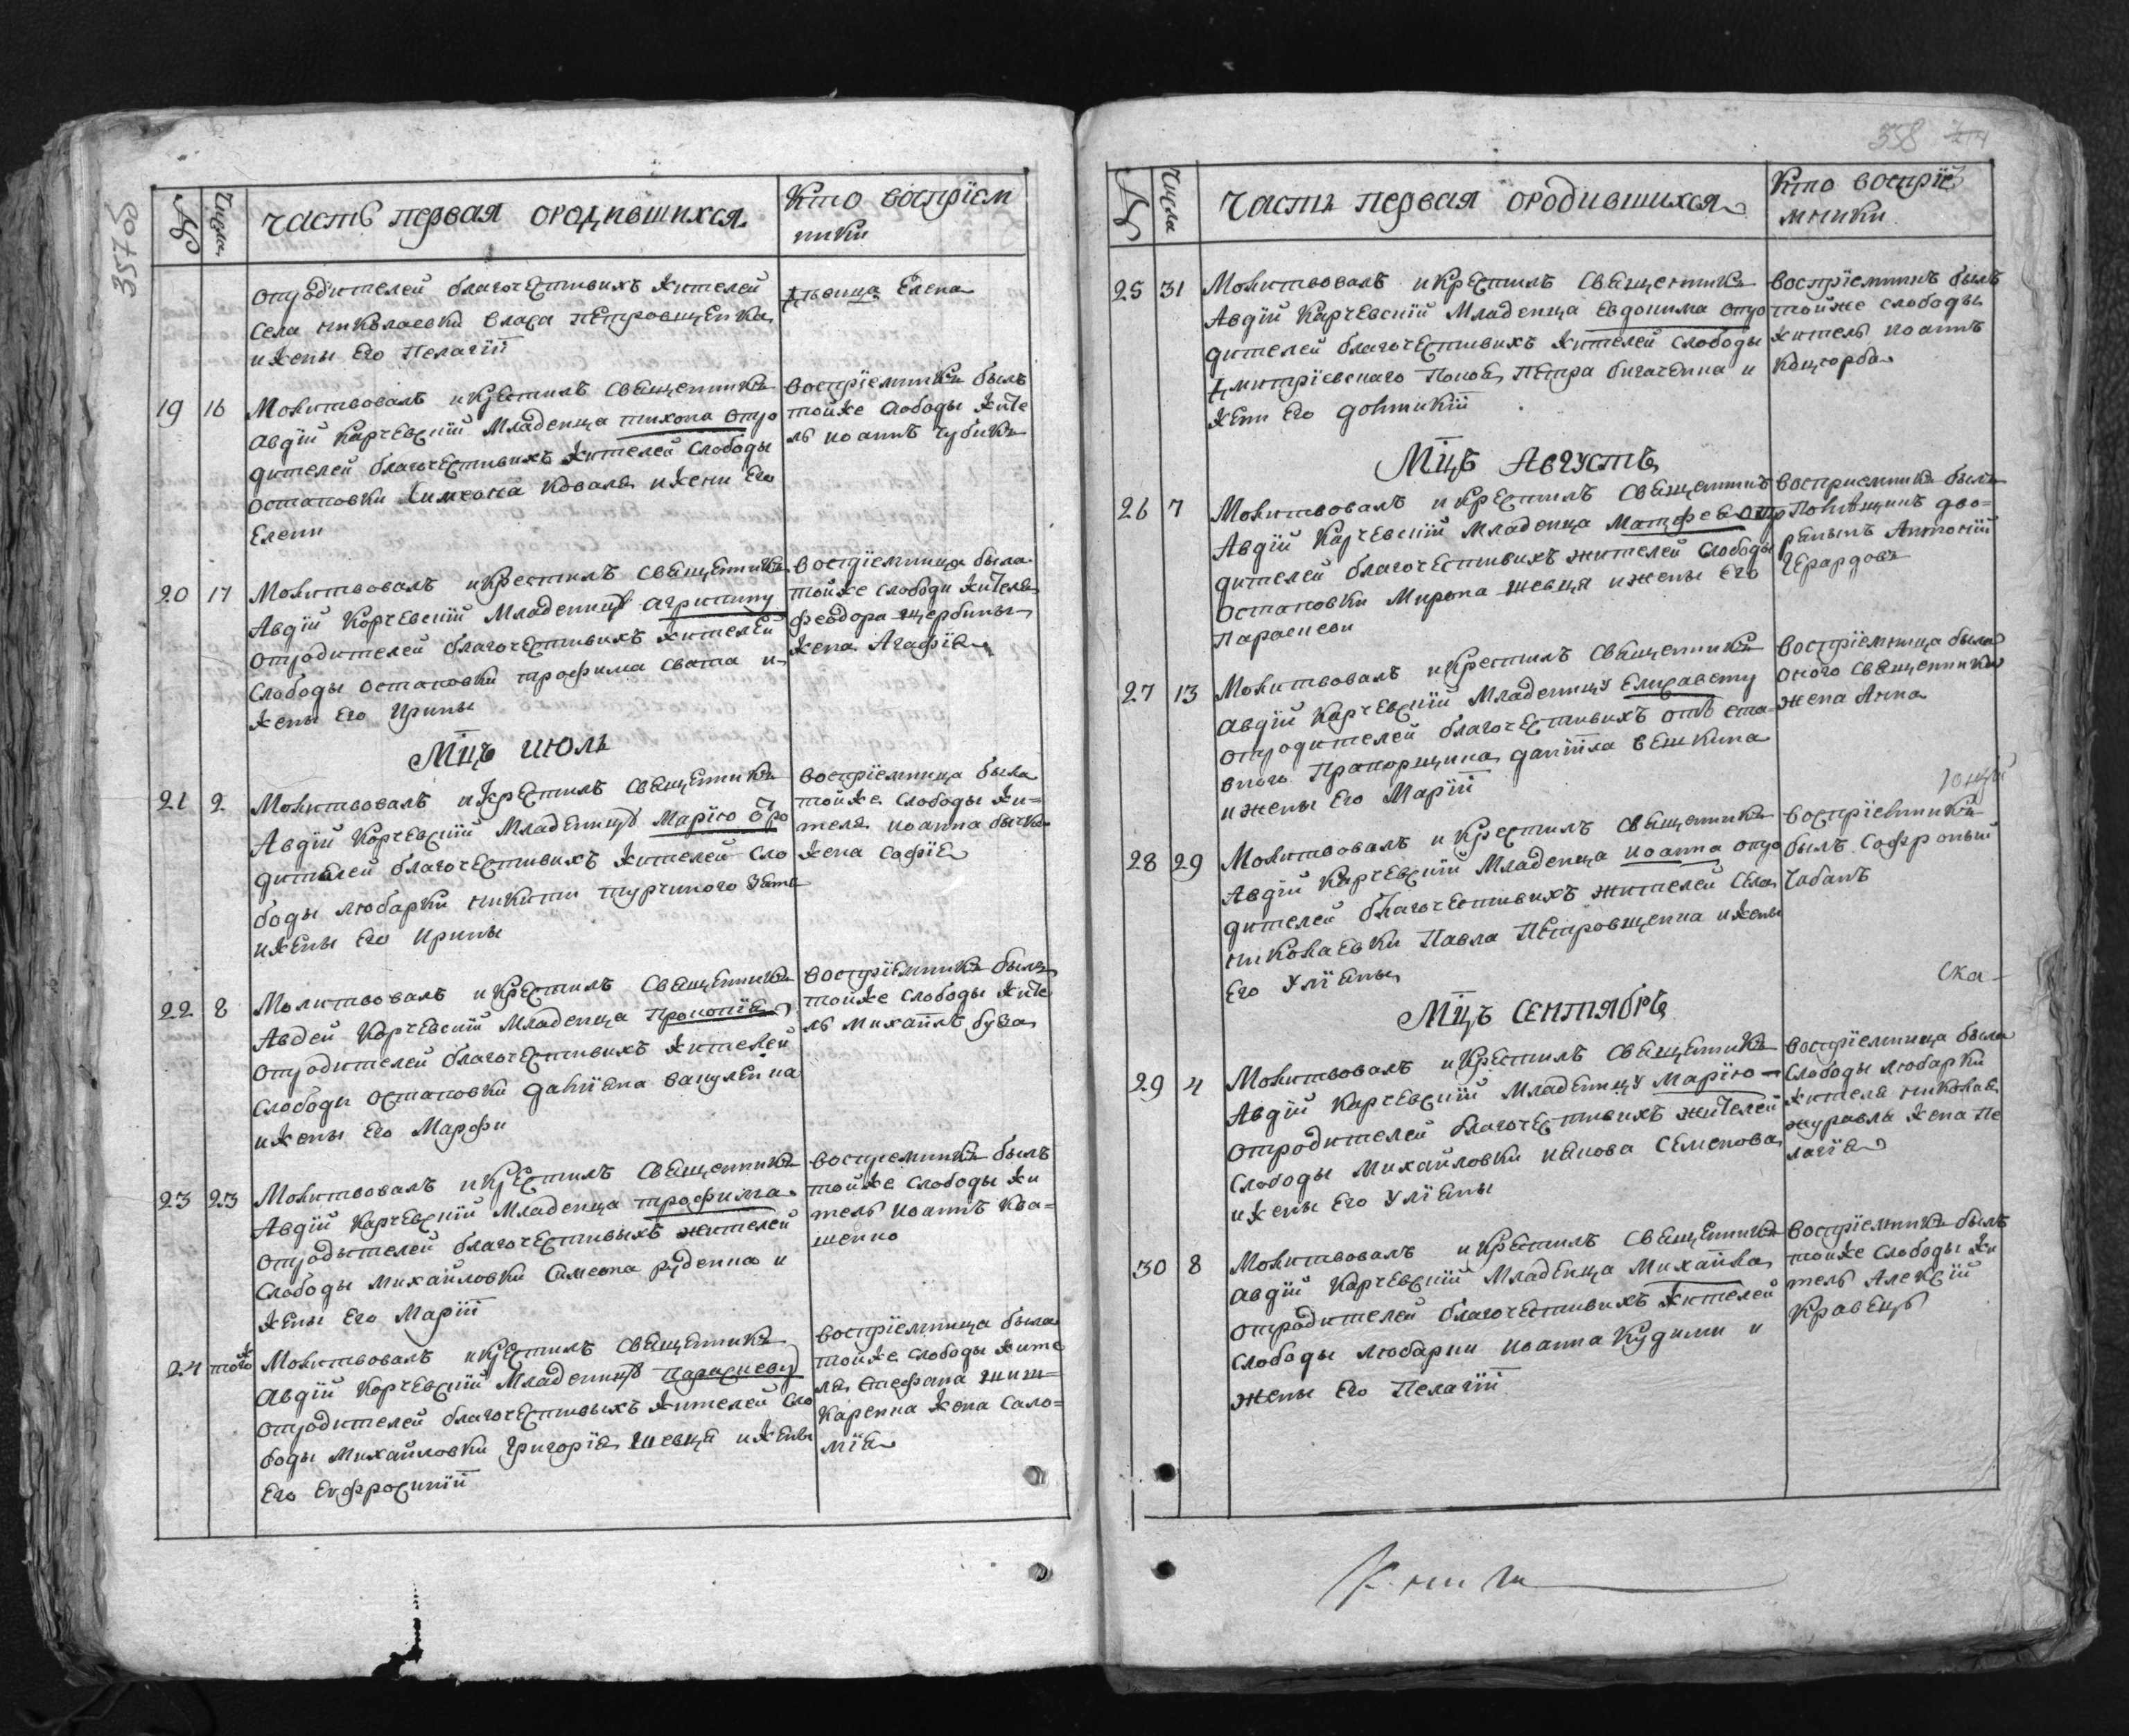 35705
№
Числа
Часть первая ородившихся
Кто воспріем
ники
отродителей благочестивихъ жителей
Села николаевки власа петровщенка
и жены Его Пелагіи
дѣвица Елена
19 16 Молитвовалъ и крестилъ священникъ
Авдій Карчевскій Младенца тихона отро
дителей благочестивихъ жителей Слободы
остановки Симеона Коваля и жени Его
Елени
воспріемникъ былъ
тойже слободы жите
ль иоаннъ чубикъ
20 17 Молитвовалъ и крестилъ священникъ
Авдій Корчевскій Младеницу агрипину
отродителей благочестивихъ жителей
Слободы остановки трофима свата и
жены Его Ирины
воспріемница была
тойже слободи жителя
феодора щербины
жена Агафія
Мцъ июль
21 2 Молитвовалъ и крестилъ священникъ
Авдій Корчевскій Младеницу Марію ōро
дителей благочестивихъ жителей сло
боды любарки никити турчиного зятя
и жены Его Ирины
воспріемница была
тойже слободы жи=
теля иоанна бычка
жена Софія
22 8 Молитвовалъ и крестилъ священникъ
Авдей Корчевскій Младенца Прокопія
отродителей благочестивихъ жителей
Слободи остановки даніяна вакуленка
и жены Его Марфи
воспріемникъ былъ
тойже слободы жите
ль михаилъ буза
23 23 Молитвовалъ и крестилъ священникъ
Авдій Карчевскій Младенца трофима
отродытелей благочестивыхъ жителей
Слободы михайловки Симеона руденка и
жены Его Маріи
воспріемникъ былъ
тойже слободы жи
тель иоаннъ ква=
шенко
24 тогож Молитвовалъ и крестилъ священникъ
Авдій Корчевскій Младеницу параскеву
отродителей благочестивыхъ жителей сло
боды Михайловки григорія шевця и жены
Его Еуфросиніи
воспріемница была
тойже слободы жите
ля стефана шиш=
каренка жена Сало=
мія
358
№
Числа
Часть первая ородившихся
Кто воспріе
мники
25 31 Молитвовалъ и крестилъ священникъ
Авдій Карчевскій Младенца Евдокима отро
дителей благочестивихъ жителей слободы
дмитріевского Попова Петра бигаченка и
жени Его домникіи
воспріемникъ былъ
тойже слободы
житель иоаннъ
Коцюрба
Мцъ Августъ
26 7 Молитвовалъ и крестилъ священникъ
Авдій Карчевскій Младенца Матфея отро
дителей благочестивихъ жителей слободы
остановки Мирона шевця и жены Его
Параскеви
восприемникъ былъ
Помѣщикъ дво=
рянинъ Антоній
Герардовъ
27 13 Молитвовалъ и крестилъ священникъ
Авдій Карчевскій Младеницу Елисавету
отродителей благочестивихъ отъ ста=
вного Прапорщика даніила вешкина
и жены Его Маріи
воспріемница была
оного священника
жена Анна
28 29 Молитвовалъ и крестилъ священникъ
Авдій Карчевскій Младенца иоанна отро
дителей благочестивихъ жителей села
николаевки Павла Петровщенка и жены
Его Уліяны
воспріемникъ
былъ Софроный
Чабанъ
Ска-
Мцъ Сентябрь
29 4 Молитвовалъ и крестилъ священникъ
Авдій Карчевскій Младеницу Марію
отродителей благочестивихъ жителей
слободы Михайловки иакова Семенова
и жены Его Уліяны
воспріемница была
слободы любарки
жителя николая
журавля жена Пе
лагія
30 8 Молитвовалъ и крестилъ священникъ
Авдій Карчевскій Младенца Михаила
отродителей благочестивихъ жителей
слободы любарки иоанна Кудими и
жены Его Пелагіи
воспріемникъ былъ
тойже слободы жи
тель Алексій
Кравецъ